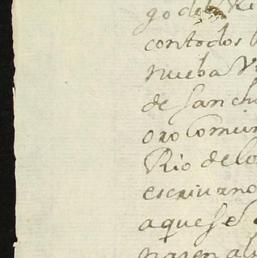 go del Re
con todos l
nueba V
de Sanch
oro Comun
Rio de lo
escriuano
aquese
nasen al